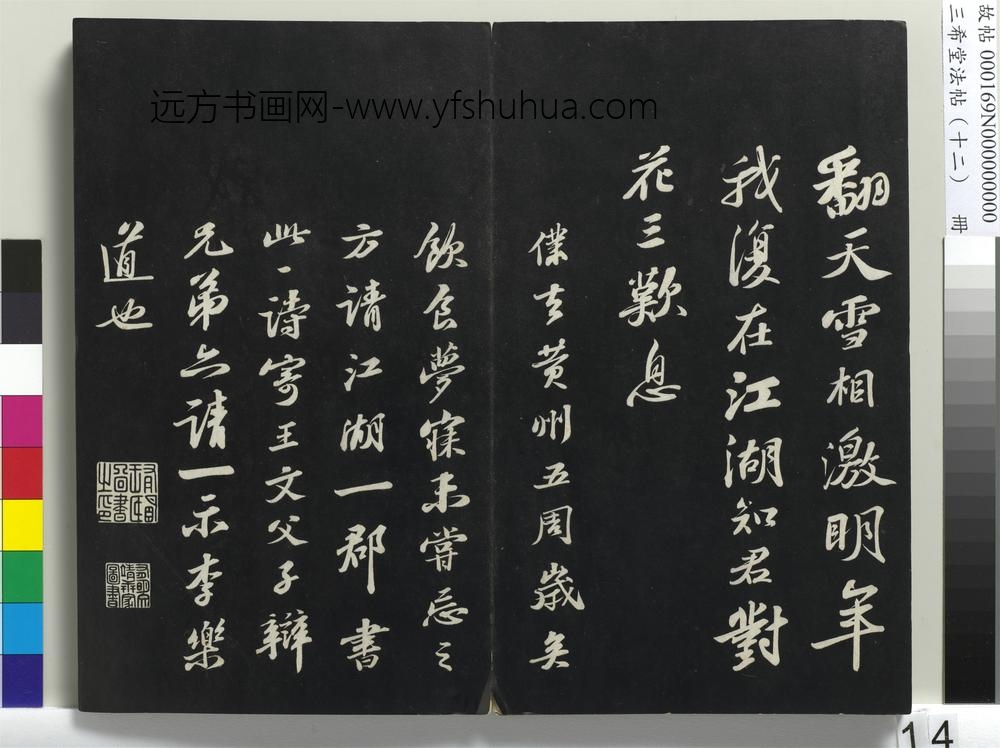 翻天雪相激明年
我復在江湖知君對
花三歎息
僕去黃州五周歲矣
飲食夢寐未嘗忘之
方請江湖一郡書
此一詩寄王文父子辯
兄弟亦請一示李樂
道也
远方书画网-www.yfshuhua.com
故帖 000169N000000000
三希堂法帖(十二) 冊
14